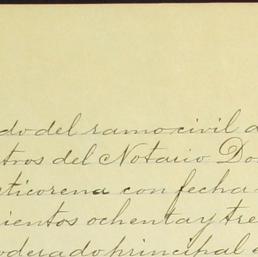 do del ramo civil d
tros del Notario Do
ticorena con fecha
ientos ochenta y tre
oderado principal e